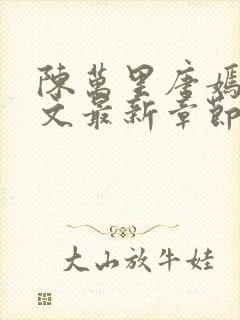 陳萬里唐嫣
文最新章節
大山放牛娃